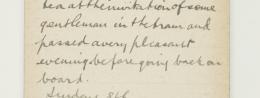 tea at the invitation of some
gentleman in the tram and
passed a very pleasant
evening before going back on
board.
Sunday 8th